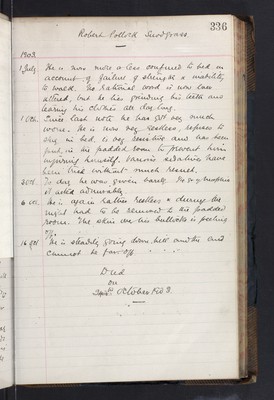 336
Robert Pollock Snodgrass.
1903.
1 July. He is now more or less confined to bed on
account of failure of strength & inability
to walk. No rational word is now ever
uttered, but he lies grinding his teeth and
tearing his clothes all day long.
1 Oct. Since last note he has got very much
worse. He is now very restless, refuses to
stay in bed, is very resistive and has been
put in the padded room to prevent him
injuring himself. Various sedatives have
been tried without much result.
3 Oct. To day he was given
it acted admirably.
6 Oct. He is again rather restless & during the
night had to be removed to the padded
room. The skin over his buttocks is peeling
off.
16 Oct. He is steadily going down hill and
cannot be far off.
Died
on
October 1903.